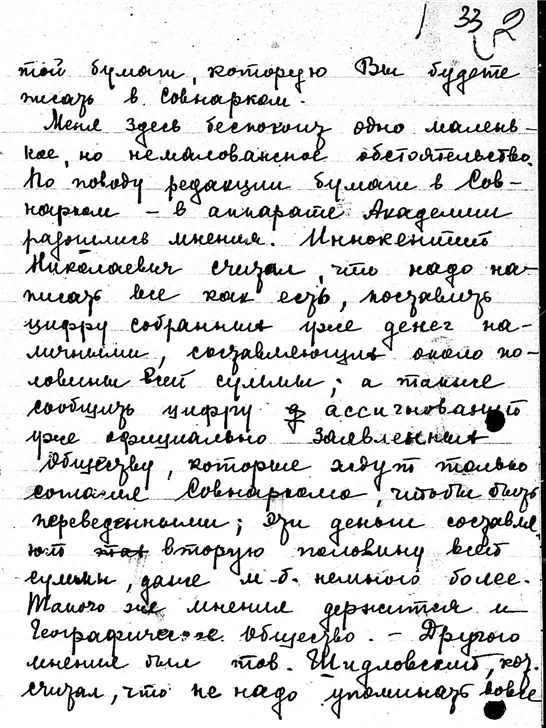 1 33 2
той бумаги, которую Вы будете
писать в Совнарком.
Меня здесь беспокоит одно малень-
кое, но немаловажное обстоятельство.
По поводу редакции бумаги в Сов-
нарком – в аппарате Академии
разошлись мнения. Иннокентий
Николаевич считал, что надо на-
писать все как есть, поставить
цифру собранных уже денег на-
личными, составляющих около по-
ловины всей суммы; а также
сообщить цифру ассигнований
уже официально заявленных
Обществу, которые ждут только
согласия Совнаркома, чтобы быть
переведенными; эти деньги составля-
ют вторую половину всей
суммы, даже м.б. немного более.
Такого же мнения держится и
Географическое Общество. – Другого
мнения был тов. Шидловский, кот.
считал, что не надо упоминать вовсе